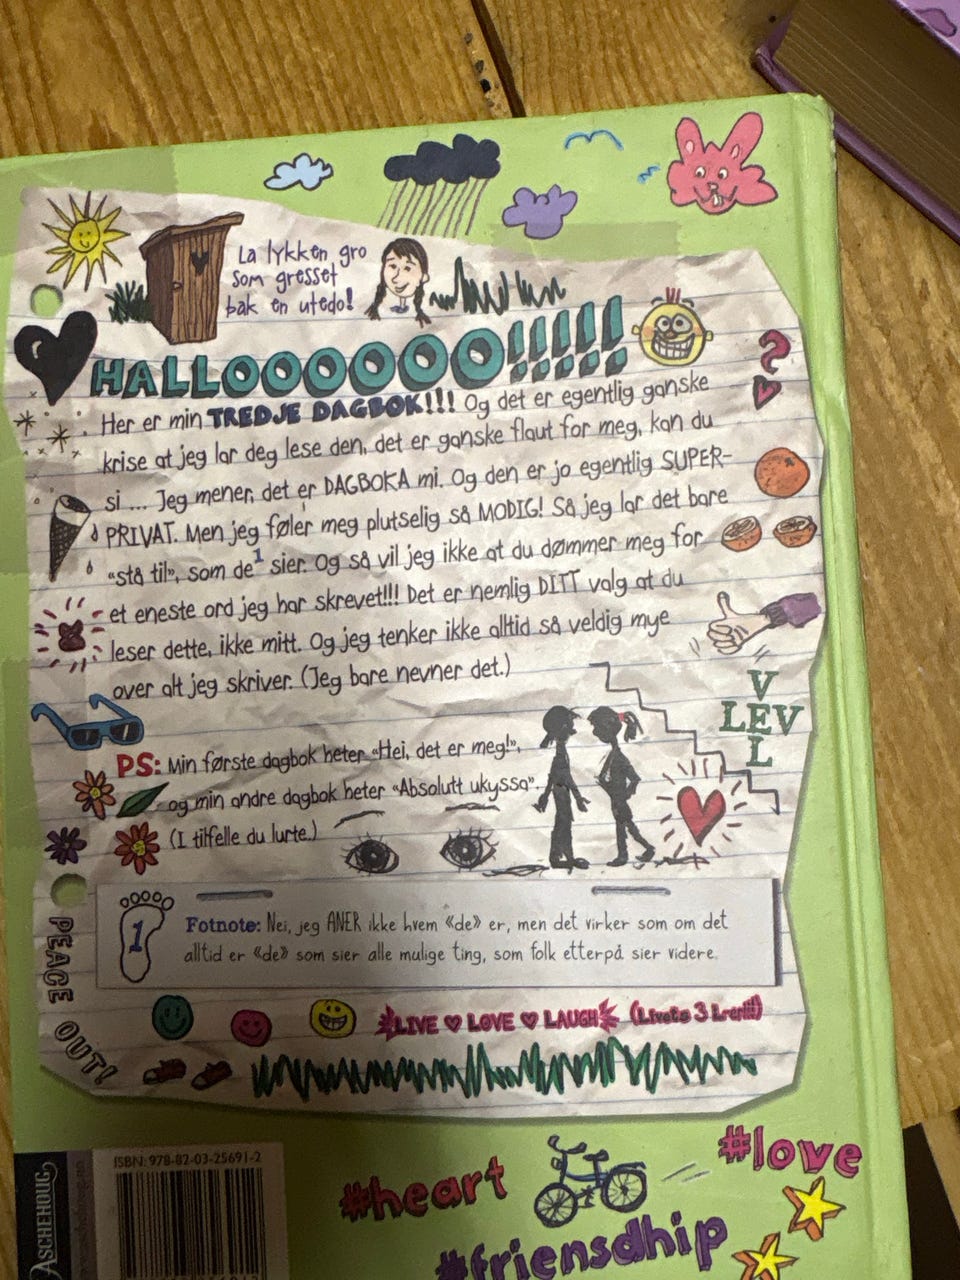 La lykken gro
som gresset
bak en utedo!
HALLOOOOOO!!!!!
Her er min TREDJE DAGBOK!!! Og det er egentlig ganske
krise at jeg lar deg lese den, det er ganske flaut for meg, kan du
si ... Jeg mener, det er DAGBOKA mi. Og den er jo egentlig SUPER-
PRIVAT. Men jeg føler meg plutselig så MODIG! Så jeg lar det bare
«stå til», som de¹ sier. Og så vil jeg ikke at du dømmer meg for
et eneste ord jeg har skrevet!!! Det er nemlig DITT valg at du
leser dette, ikke mitt. Og jeg tenker ikke alltid så veldig mye
over alt jeg skriver. (Jeg bare nevner det.)
V
LEEV
L
PS: Min første dagbok heter «Hei, det er meg!»,
og min andre dagbok heter «Absolutt ukyssa».
(I tilfelle du lurte.)
1
Fotnote: Nei, jeg ANER ikke hvem «de» er, men det virker som om det
alltid er «de» som sier alle mulige ting, som folk etterpå sier videre.
PEACE OUT!
LIVE LOVE LAUGH (Livets 3 L-er!!!)
ISBN: 978-82-03-25691-2
ASCHEHOUG
#heart
#love
#friensdhip